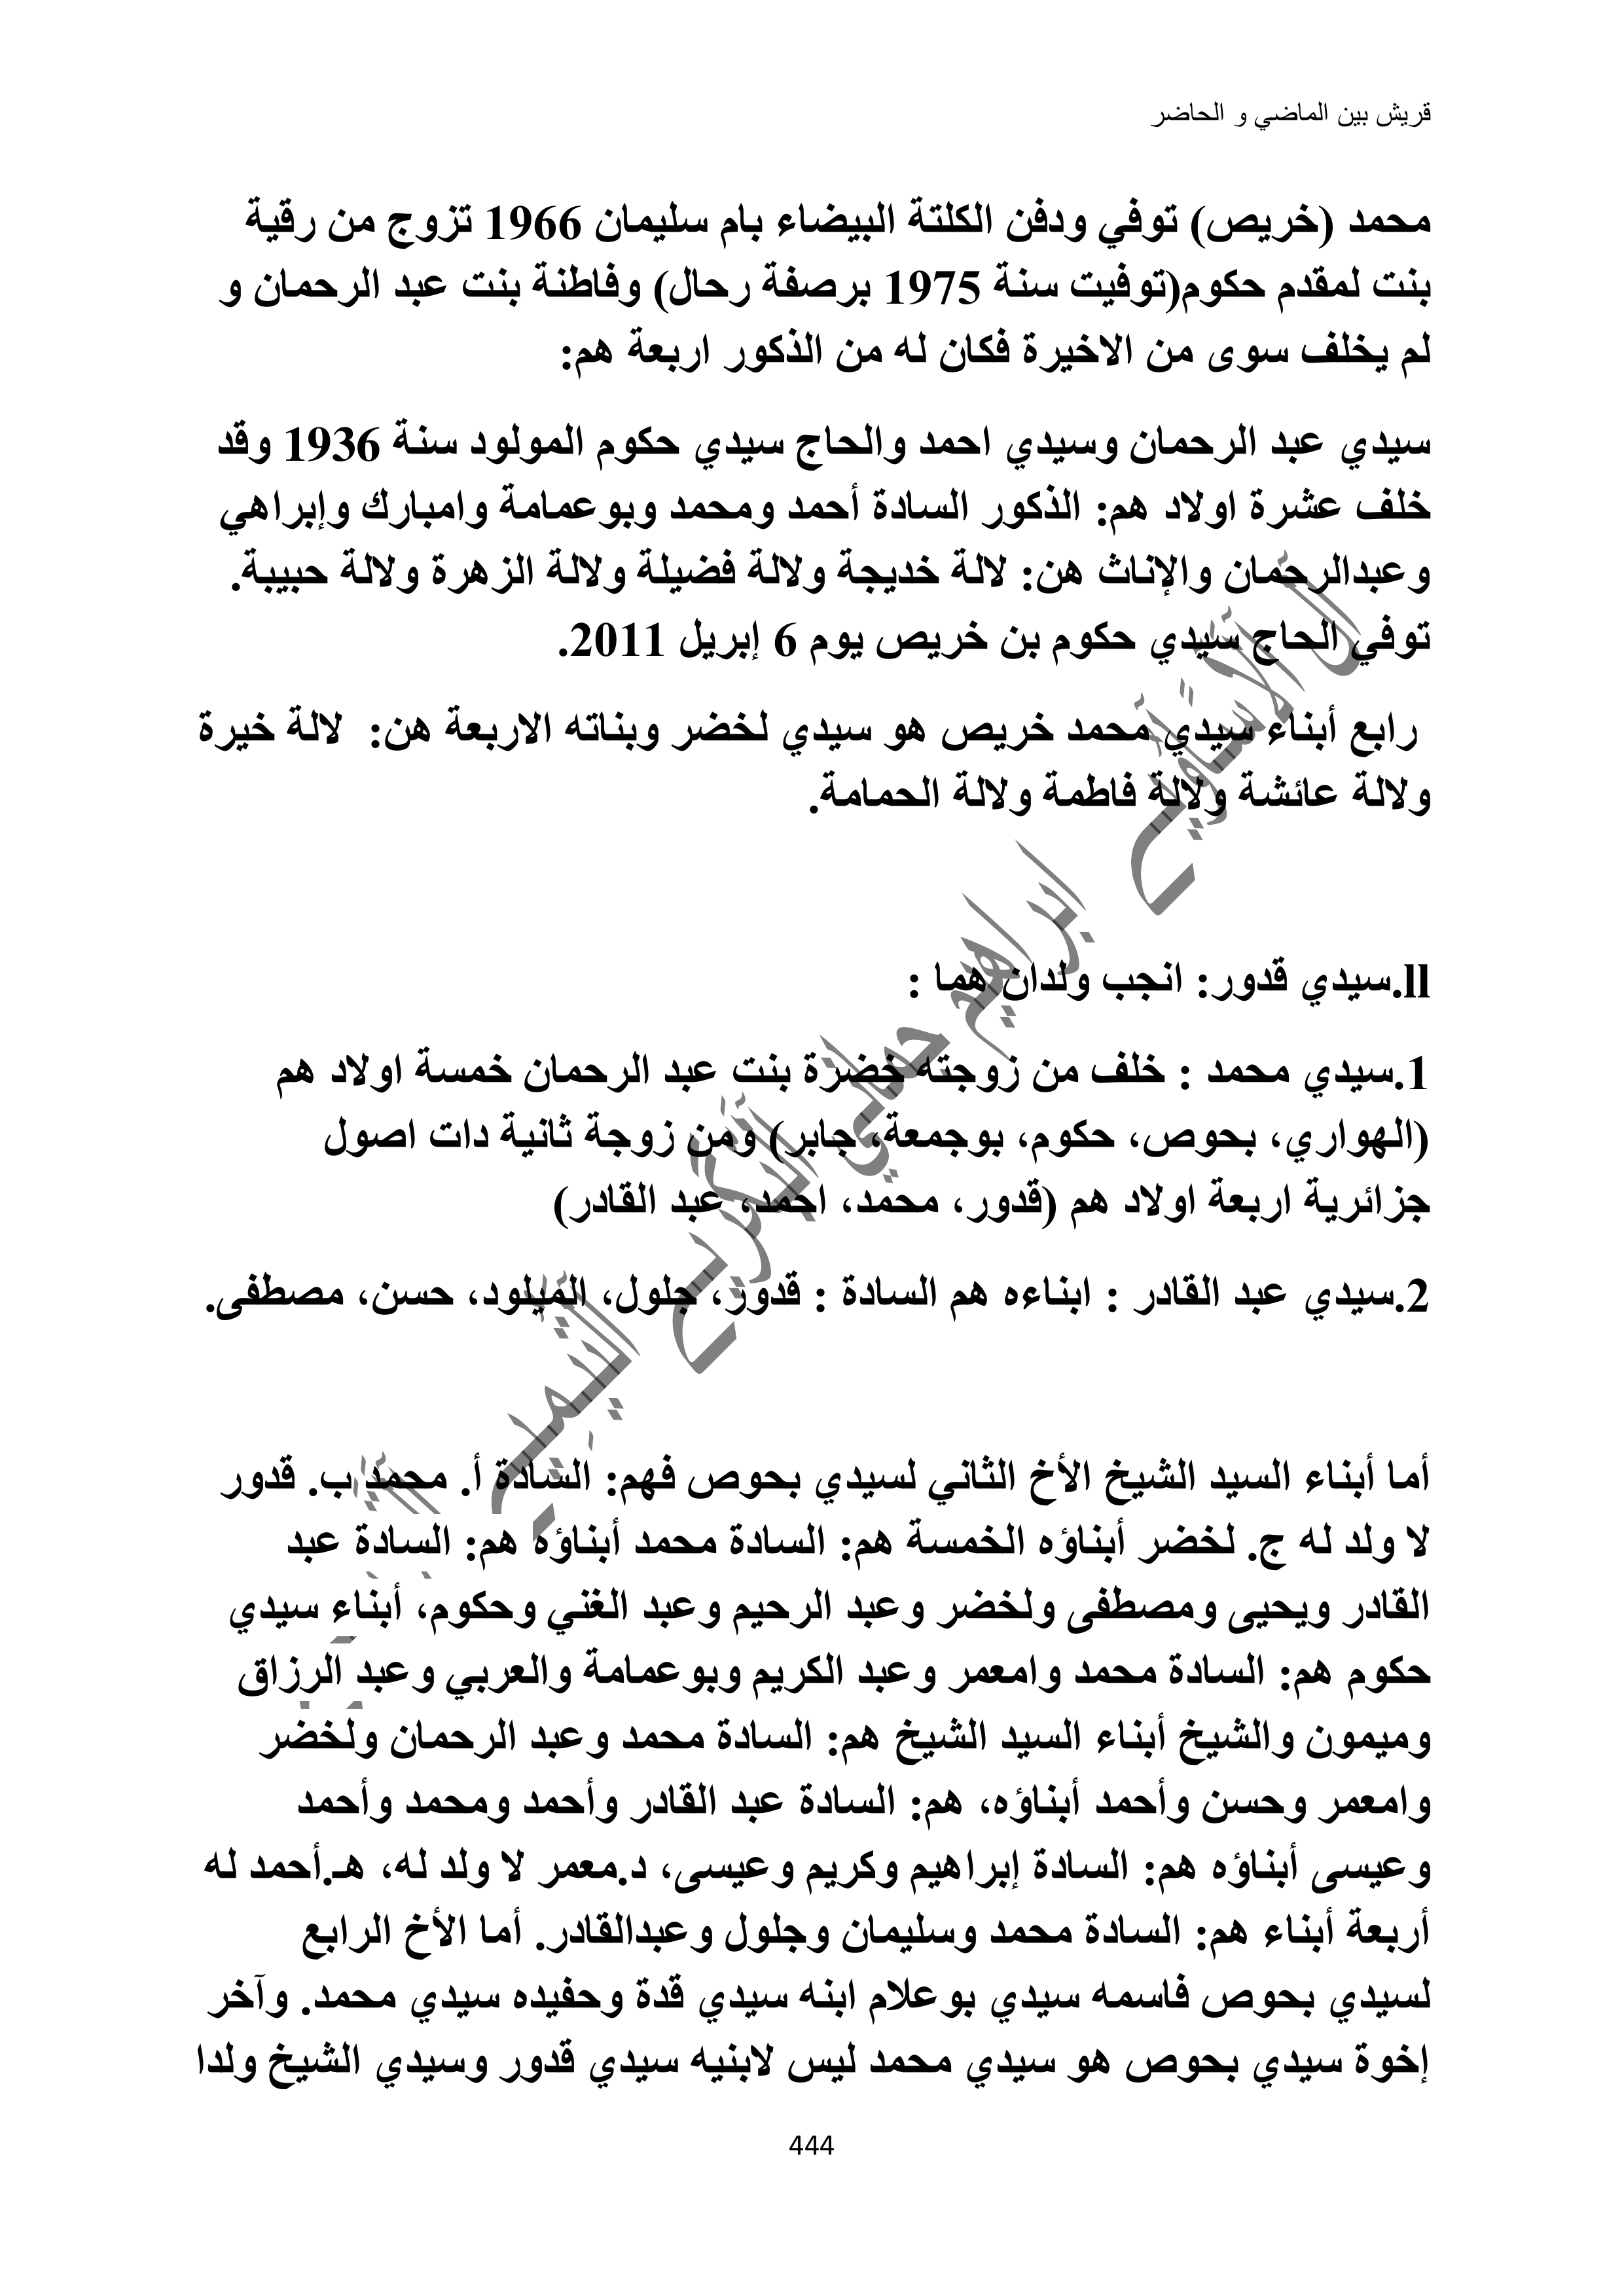 قريش بين الماضي و الحاضر
محمد (خريص) توفي ودفن الكلتة البيضاء بام سليمان 1966 تزوج من رقية
بنت لمقدم حكوم(توفيت سنة 1975 برصفة رحال) وفاطنة بنت عبد الرحمان و
لم يخلف سوى من الاخيرة فكان له من الذكور اربعة هم:
سيدي عبد الرحمان وسيدي احمد والحاج سيدي حكوم المولود سنة 1936 وقد
خلف عشرة اولاد هم: الذكور السادة أحمد ومحمد وبوعمامة وامبارك وإبراهي
وعبدالرحمان والإناث هن: لالة خديجة ولالة فضيلة ولالة الزهرة ولالة حبيبة.
توفي الحاج سيدي حكوم بن خريص يوم 6 إبريل 2011.
رابع أبناء سيدي محمد خريص هو سيدي لخضر وبناته الاربعة هن: لالة خيرة
ولالة عائشة ولالة فاطمة ولالة الحمامة.
ll.سيدي قدور: انجب ولدان هما :
1.سيدي محمد : خلف من زوجته خضرة بنت عبد الرحمان خمسة اولاد هم
(الهواري، بحوص، حكوم، بوجمعة، جابر) ومن زوجة ثانية دات اصول
جزائرية اربعة اولاد هم (قدور، محمد، احمد، عبد القادر)
2.سيدي عبد القادر : ابناءه هم السادة : قدور، جلول، الميلود، حسن، مصطفى.
أما أبناء السيد الشيخ الأخ الثاني لسيدي بحوص فهم: السادة أ. محمد ب. قدور
لا ولد له ج. لخضر أبناؤه الخمسة هم: السادة محمد أبناؤه هم: السادة عبد
القادر ويحيى ومصطفى ولخضر وعبد الرحيم وعبد الغني وحكوم، أبناء سيدي
حكوم هم: السادة محمد وامعمر وعبد الكريم وبوعمامة والعربي وعبد الرزاق
وميمون والشيخ أبناء السيد الشيخ هم: السادة محمد وعبد الرحمان ولخضر
وامعمر وحسن وأحمد أبناؤه، هم: السادة عبد القادر وأحمد ومحمد وأحمد
وعيسى أبناؤه هم: السادة إبراهيم وكريم وعيسى، د.معمر لا ولد له، هـ.أحمد له
أربعة أبناء هم: السادة محمد وسليمان وجلول وعبدالقادر. أما الأخ الرابع
لسيدي بحوص فاسمه سيدي بوعلام ابنه سيدي قدة وحفيده سيدي محمد. وآخر
إخوة سيدي بحوص هو سيدي محمد ليس لابنيه سيدي قدور وسيدي الشيخ ولدا
444